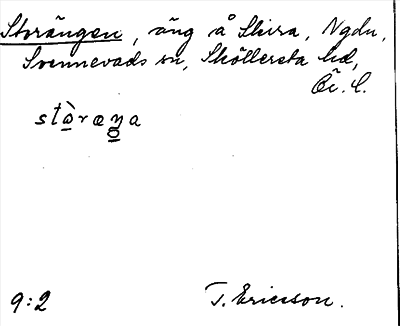 Storängen, äng å Skira, Ngdn,
Svennevads sn, Sköllersta hd,
Ör. l.
stòraŋa
9:2 T. Ericsson.